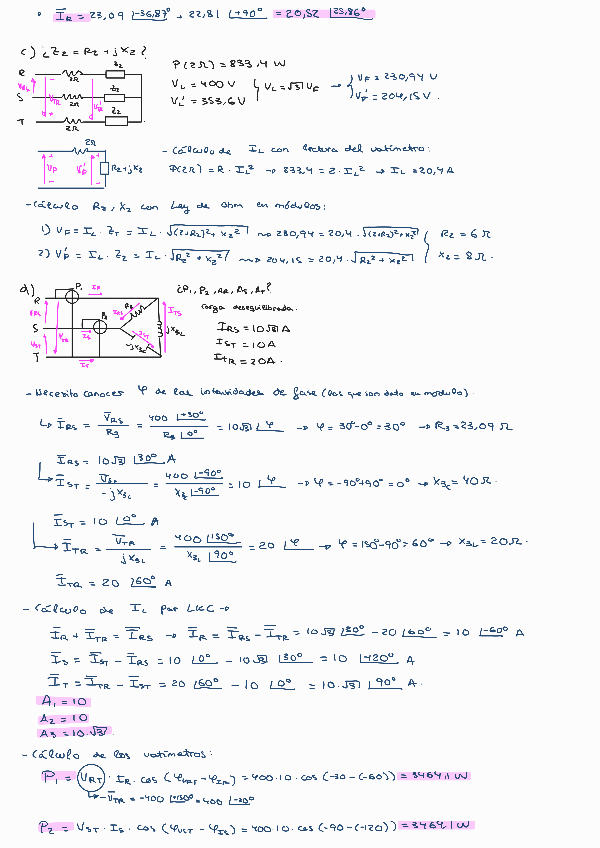 • I̅R = 23,09 ∠-36,87° + 22,81 ∠+90° = 20,52 ∠23,86°
c) ¿Z2 = R2 + jX2?
R
S
T
2Ω
2Ω
2Ω
Z2
Z2
Z2
P(2Ω) = 833,4 W
VL = 400 V
VL' = 353,6 V
VL = √3 VF
→ VF = 230,94 V
VF' = 204,15 V.
2Ω
VF
VF'
R2+jX2
- Cálculo de IL con lectura del vatímetro:
P(2Ω) = R · IL² → 833,4 = 2 · IL² → IL = 20,4 A
- Cálculo R2, X2 con Ley de Ohm en módulos:
1) VF = IL · ZT = IL · √((2+R2)² + X2²) ⇝ 230,94 = 20,4 · √((2+R2)² + X2²)
2) VF' = IL · Z2 = IL · √(R2² + X2²) ⇝ 204,15 = 20,4 · √(R2² + X2²)
R2 = 6 Ω
X2 = 8 Ω.
d)
R
S
T
P1
P2
IR
IS
IT
ITS
jX3L
-jX3C
¿P1, P2, AR, AS, AT?
Carga desequilibrada.
IRS = 10√3 A
IST = 10 A
ITR = 20 A.
- Necesito conocer φ de las intensidades de fase (las que son dato en módulo).
↳ I̅RS = V̅RS / R3 = 400 ∠+30° / R3 ∠0° = 10√3 ∠φ → φ = 30°-0° = 30° → R3 = 23,09 Ω
I̅RS = 10√3 ∠30° A
I̅ST = V̅ST / -jX3C = 400 ∠-90° / X3 ∠-90° = 10 ∠φ → φ = -90°+90° = 0° → X3C = 40 Ω.
I̅ST = 10 ∠0° A
I̅TR = V̅TR / jX3L = 400 ∠150° / X3L ∠90° = 20 ∠φ → φ = 150°-90° = 60° → X3L = 20 Ω.
I̅TR = 20 ∠60° A
- Cálculo de IL por LKC →
I̅R + I̅TR = I̅RS → I̅R = I̅RS - I̅TR = 10√3 ∠30° - 20 ∠60° = 10 ∠-60° A
I̅S = I̅ST - I̅RS = 10 ∠0° - 10√3 ∠30° = 10 ∠-120° A
I̅T = I̅TR - I̅ST = 20 ∠60° - 10 ∠0° = 10·√3 ∠90° A.
A1 = 10
A2 = 10
A3 = 10·√3.
- Cálculo de los vatímetros:
P1 = VRT · IR · cos (φVRT - φIR) = 400·10·cos (-30-(-60)) = 3464,1 W
↳ -V̅TR = -400 ∠+150° = 400 ∠-30°
P2 = VST · IS · cos (φVST - φIS) = 400·10·cos (-90-(-120)) = 3464,1 W